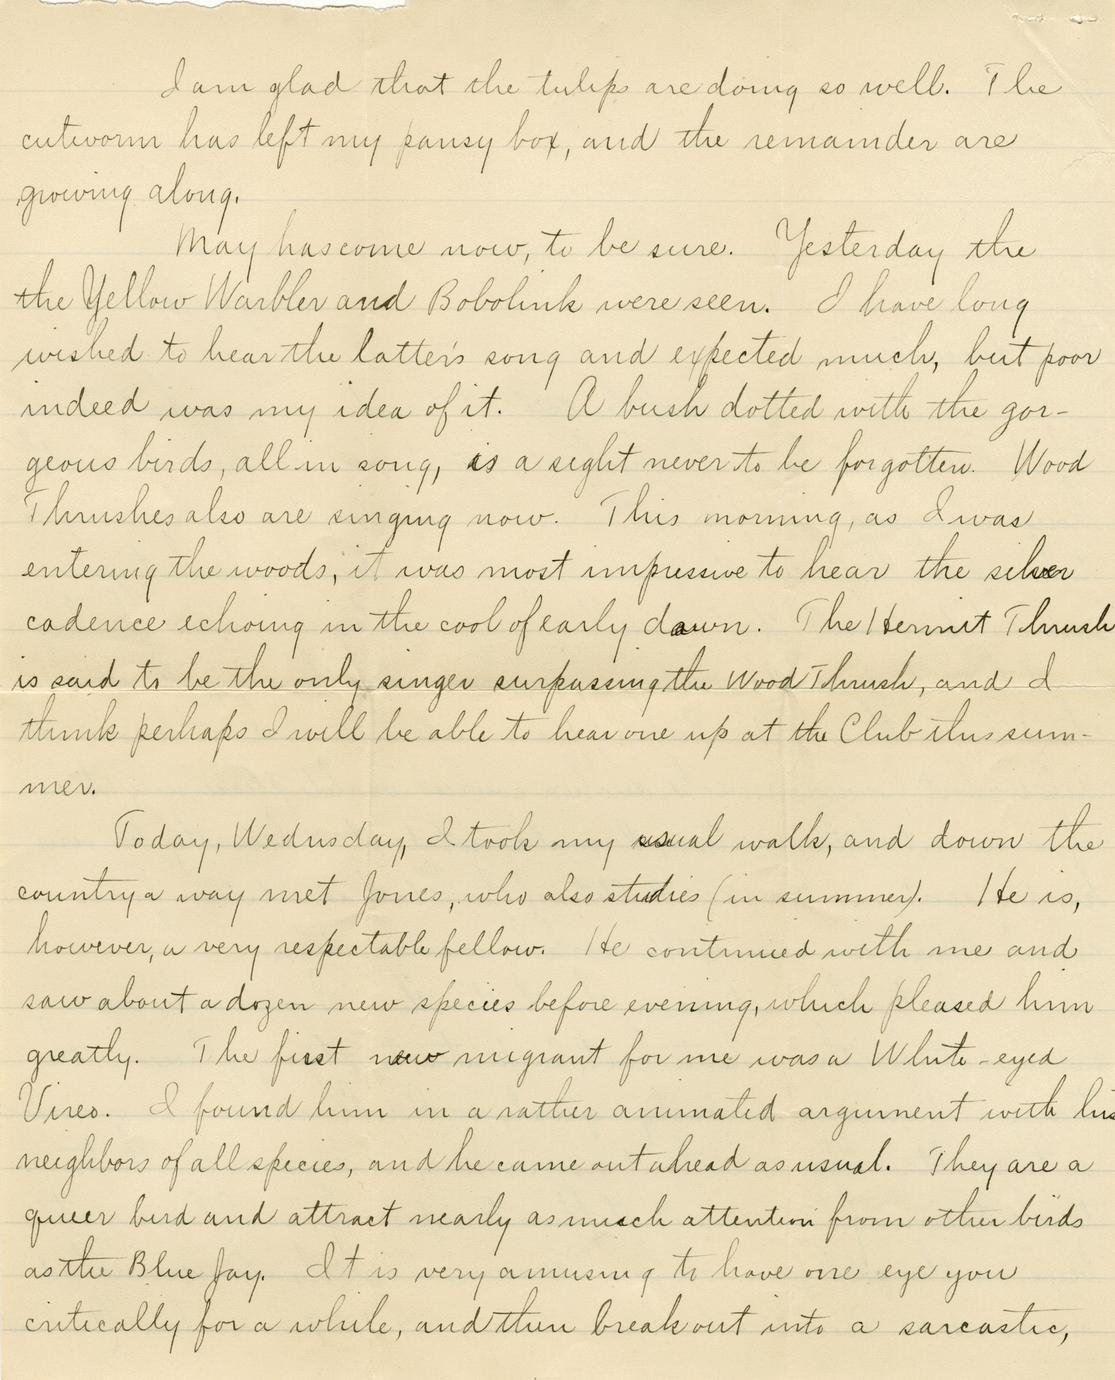 I am glad that the tulips are doing so well. The
cutworm has left my pansy box, and the remainder are
growing along.
May has come now, to be sure. Yesterday the
the Yellow Warbler and Bobolink were seen. I have long
wished to hear the latter's song and expected much, but poor
indeed was my idea of it. A bush dotted with the gor-
geous birds, all in song, is a sight never to be forgotten. Wood
Thrushes also are singing now. This morning, as I was
entering the woods, it was most impressive to hear the silver
cadence echoing in the cool of early dawn. The Hermit Thrush
is said to be the only singer surpassing the Wood Thrush, and I
think perhaps I will be able to hear one up at the Club this sum-
mer.
Today, Wednsday, I took my usual walk, and down the
country a way met Jones, who also studies (in summer). He is,
however, a very respectable fellow. He continued with me and
saw about a dozen new species before evening, which pleased him
greatly. The first new migrant for me was a White-eyed
Vireo. I found him in a rather animated argument with his
neighbors of all species, and he came out ahead as usual. They are a
queer bird and attract nearly as much attention from other birds
as the Blue Jay. It is very amusing to have one eye you
critically for a while, and then break out into a sarcastic,